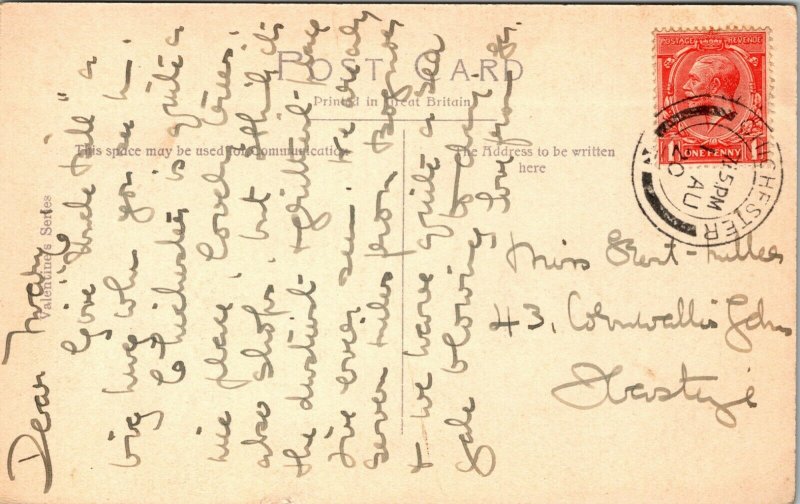 POST CARD
Printed in Great Britain
This space may be used for communication
The Address to be written
here
Valentine's Series
POSTAGE REVENUE
1 ONE PENNY 1
CHICHESTER
7.15 PM
AU
20
Dear
"Give Uncle Bill" a
big hug when you see him.
Chichester is quite a
nice place, lovely
also shops, but I think it's
the dustiest & grittiest place
I've ever seen. We are only
seven miles from Bognor
& we have quite a sea
gale blowing to-day.
Love from
Miss Kent-
43, Cornwallis Gdns
Hastings